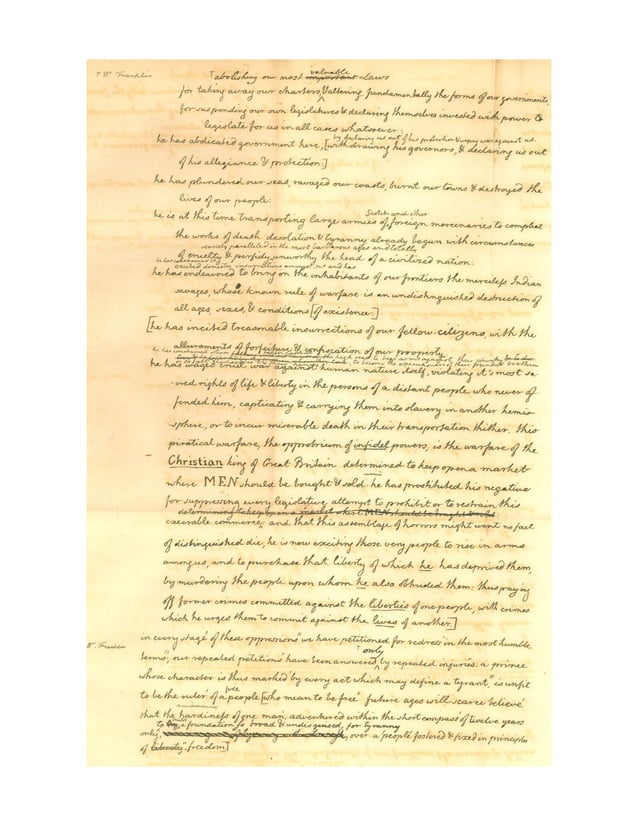 † Dr. Franklin
† abolishing our most important valuable Laws
for taking away our charters, & altering fundamentally the forms of our governments,
for suspending our own legislatures & declaring themselves invested with power to
legislate for us in all cases whatsoever:
by declaring us out of his protection & waging war against us.
he has abdicated government here, [withdrawing his governors, & declaring us out
of his allegiance & protection:]
he has plundered our seas, ravaged our coasts, burnt our towns & destroyed the
lives of our people:
Scotch and other
he is at this time transporting large armies of foreign mercenaries to compleat
the works of death desolation & tyranny already begun with circumstances
scarcely paralleled in the most barbarous ages and totally
of cruelty & perfidy unworthy the head of a civilized nation:
excited domestic insurrections amongst us and has
he has endeavored to bring on the inhabitants of our frontiers the merciless Indian
savages, whose known rule of warfare is an undistinguished destruction of
all ages, sexes, & conditions [of existence:]
[he has incited treasonable insurrections of our fellow-citizens, with the
allurements of forfeiture & confiscation of our property
he has waged cruel war against human nature itself, violating it's most sa-
-cred rights of life & liberty in the persons of a distant people who never of-
fended him, captivating & carrying them into slavery in another hemis-
sphere, or to incur miserable death in their transportation thither. this
piratical warfare, the opprobrium of infidel powers, is the warfare of the
Christian king of Great Britain determined to keep open a market
where MEN should be bought & sold he has prostituted his negative
for suppressing every legislative attempt to prohibit or to restrain this
determining to keep open a market where MEN should be bought & sold
execrable commerce: and that this assemblage of horrors might want no fact
of distinguished die, he is now exciting those very people to rise in arms
among us, and to purchase that liberty of which he has deprived them,
by murdering the people upon whom he also obtruded them: thus paying
off former crimes committed against the liberties of one people, with crimes
which he urges them to commit against the lives of another.]
in every stage of these oppressions we have petitioned for redress in the most humble
Dr. Franklin
only
terms; our repeated petitions have been answered by repeated injuries. a prince
whose character is thus marked by every act which may define a tyrant, is unfit
free
to be the ruler of a people [who mean to be free. future ages will scarce believe
that the hardiness of one man, adventured within the short compass of twelve years
a foundation so broad & undisguised, for tyranny
only, over a people fostered & fixed in principles
of freedom.]